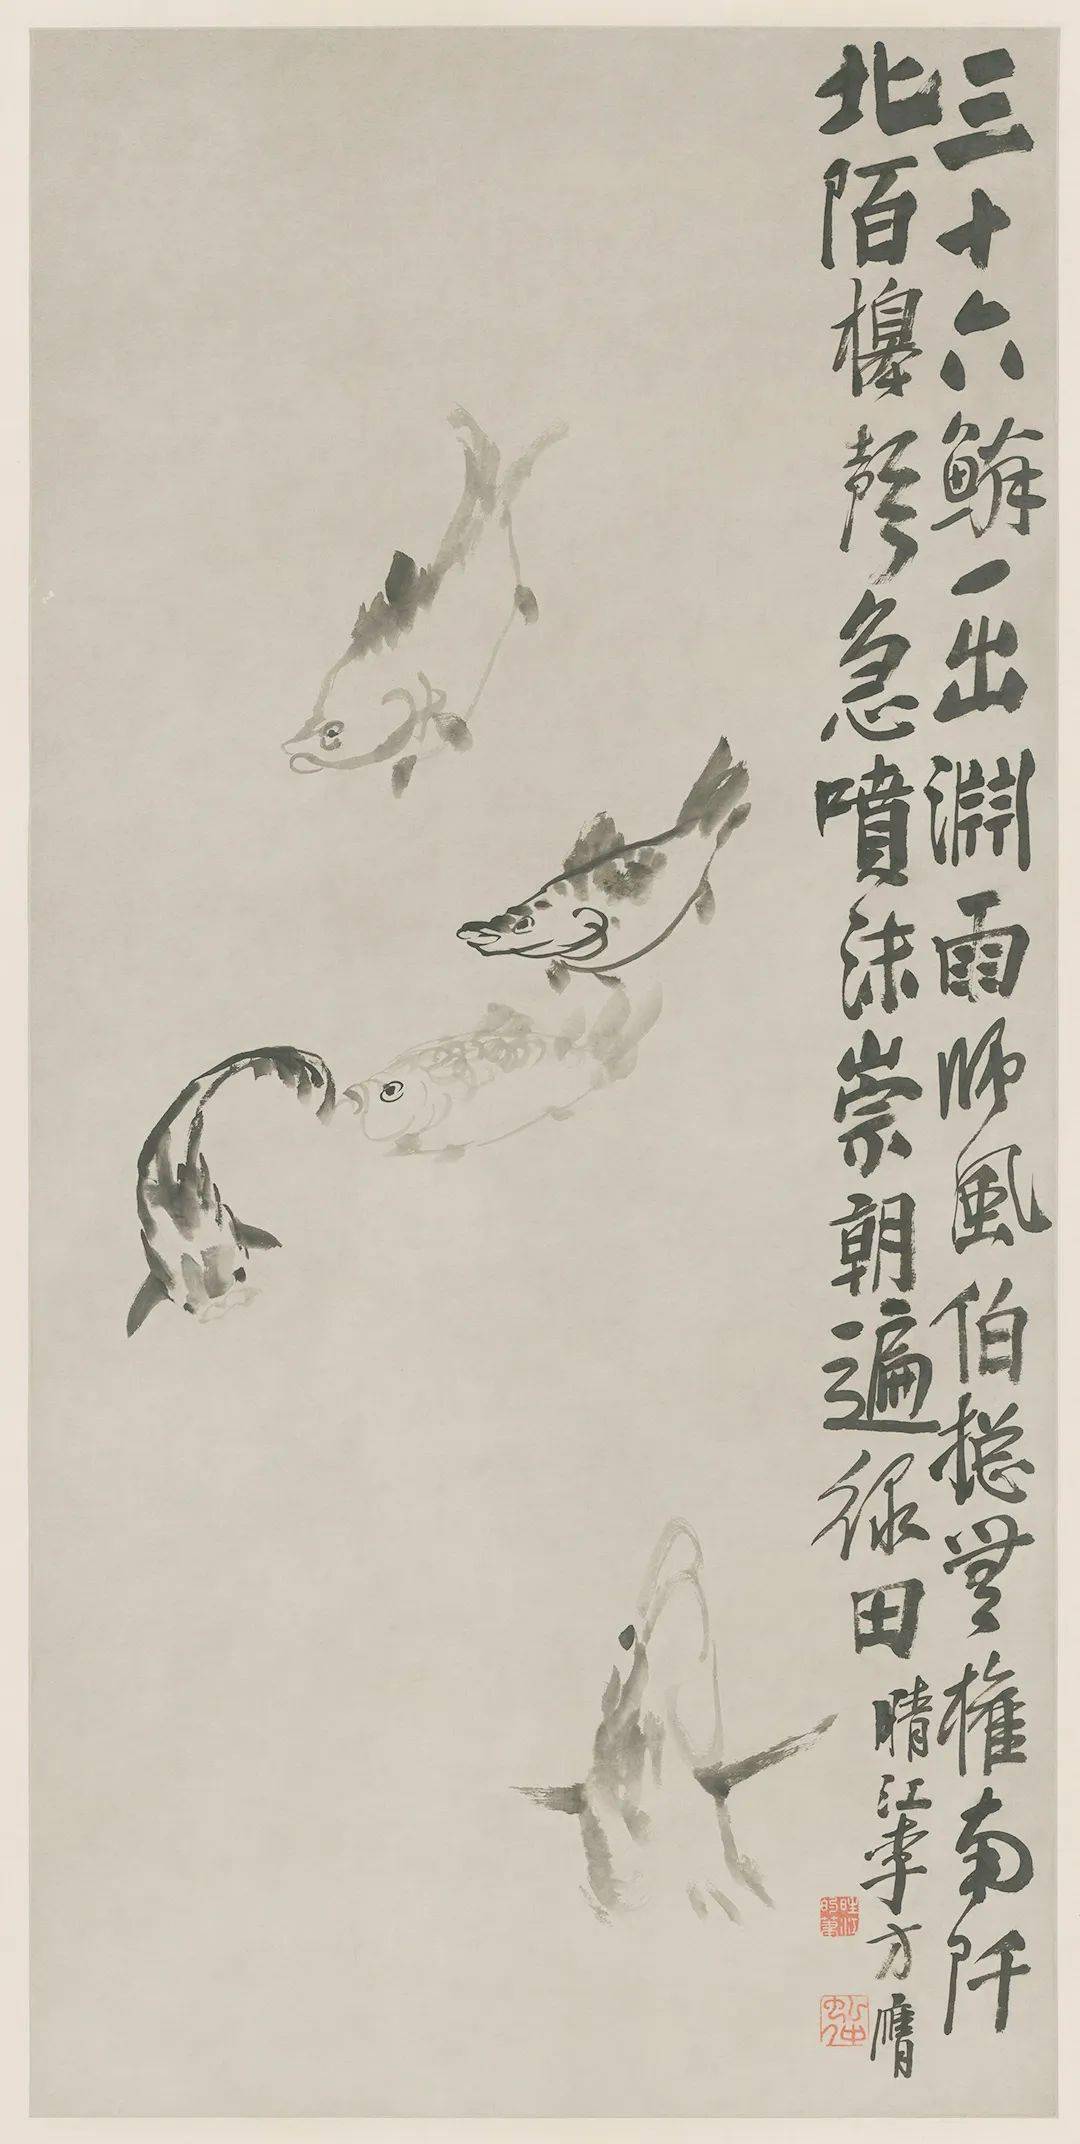 三十六鱗一出淵雨師風伯摠無權南阡
北陌槔聲急噴沫崇朝遍綠田 晴江李方膺